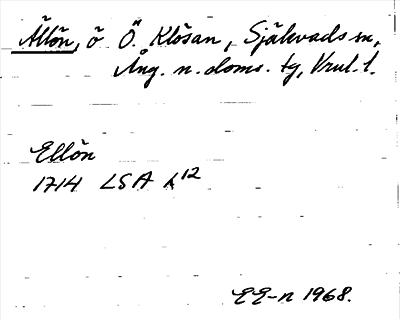 Ällön, ö Ö. Klösan, Själevads sn,
Ång. n. doms. tg, Vrul. 1.
Ellön
1714 LSA A 12
EE-n 1968.